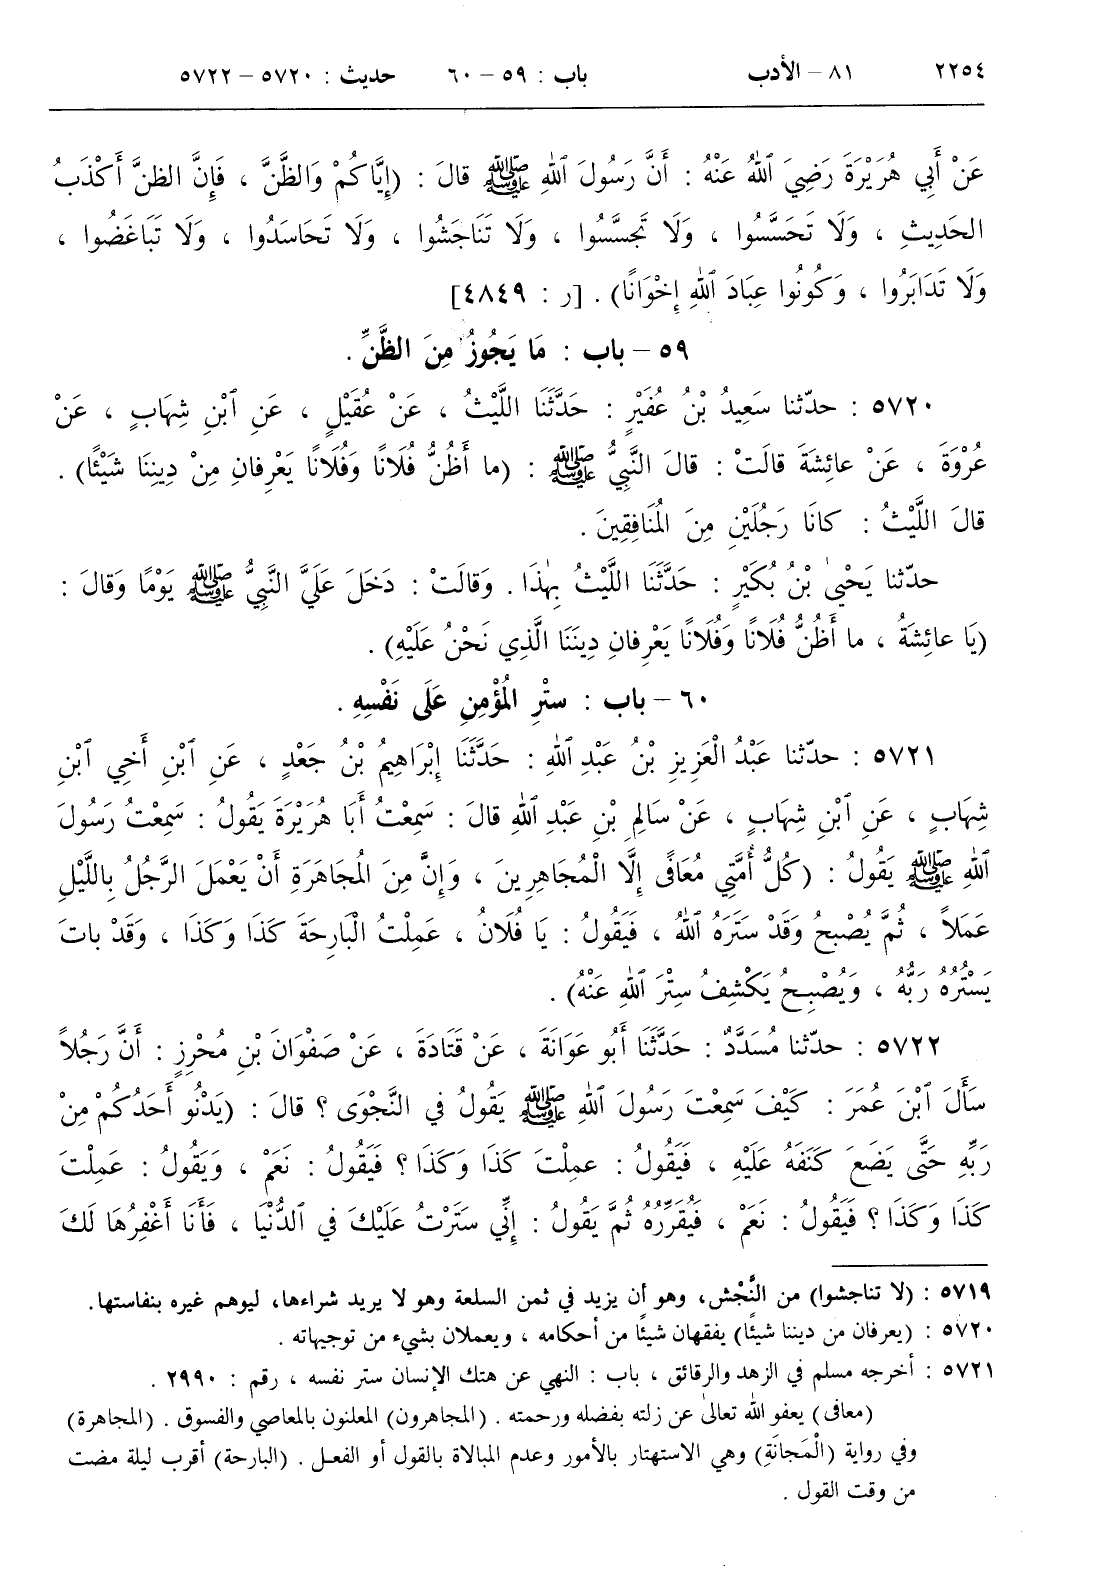 ٢٢٥٤ ٨١ – الأدب باب : ٥٩ – ٦٠ حديث : ٥٧٢٠ – ٥٧٢٢
عَنْ أَبِي هُرَيْرَةَ رَضِيَ ٱللهُ عَنْهُ : أَنَّ رَسُولَ ٱللهِ ﷺ قالَ : (إِيَّاكُمْ وَالظَّنَّ ، فَإِنَّ الظنَّ أَكْذَبُ
الحَدِيثِ ، وَلَا تَحَسَّسُوا ، وَلَا تَجسَّسُوا ، وَلَا تَنَاجَشُوا ، وَلَا تَحَاسَدُوا ، وَلَا تَبَاغَضُوا ،
وَلَا تَدَابَرُوا ، وَكُونُوا عِبَادَ ٱللهِ إِخْوَانًا) . [ر : ٤٨٤٩]
٥٩ – باب : مَا يَجُوزُ مِنَ الظَّنِّ .
٥٧٢٠ : حدّثنا سَعِيدُ بْنُ عُفَيْرٍ : حَدَّثَنَا اللَّيْثُ ، عَنْ عُقَيْلٍ ، عَنِ ٱبْنِ شِهَابٍ ، عَنْ
عُرْوَةَ ، عَنْ عائِشَةَ قالَتْ : قالَ النَّبِيُّ ﷺ : (ما أَظُنُّ فُلَانًا وَفُلَانًا يَعْرِفانِ مِنْ دِينِنَا شَيْئًا) .
قالَ اللَّيْثُ : كانَا رَجُلَيْنِ مِنَ المُنَافِقِينَ .
حدّثنا يَحْيىٰ بْنُ بُكَيْرٍ : حَدَّثَنَا اللَّيْثُ بِهٰذَا . وَقالَتْ : دَخَلَ عَلَيَّ النَّبِيُّ ﷺ يَوْمًا وَقالَ :
(يَا عائِشَةُ ، ما أَظُنُّ فُلَانًا وَفُلَانًا يَعْرِفانِ دِينَنَا الَّذِي نَحْنُ عَلَيْهِ) .
٦٠ – باب : ستْرِ المُؤْمِنِ عَلَى نَفْسِهِ .
٥٧٢١ : حدّثنا عَبْدُ الْعَزِيزِ بْنُ عَبْدِ ٱللهِ : حَدَّثَنَا إِبْرَاهِيمُ بْنُ سَعْدٍ ، عَنِ ٱبْنِ أَخِي ٱبْنِ
شِهَابٍ ، عَنِ ٱبْنِ شِهَابٍ ، عَنْ سَالِمِ بْنِ عَبْدِ ٱللهِ قالَ : سَمِعْتُ أَبَا هُرَيْرَةَ يَقُولُ : سَمِعْتُ رَسُولَ
ٱللهِ ﷺ يَقُولُ : (كُلُّ أُمَّتِي مُعَافًى إِلَّا الْمُجَاهِرِينَ ، وَإِنَّ مِنَ المُجَاهَرَةِ أَنْ يَعْمَلَ الرَّجُلُ بِاللَّيْلِ
عَمَلاً ، ثُمَّ يُصْبِحُ وَقَدْ سَتَرَهُ ٱللهُ ، فَيَقُولُ : يَا فُلَانُ ، عَمِلْتُ الْبَارِحَةَ كَذَا وَكَذَا ، وَقَدْ باتَ
يَسْتُرُهُ رَبُّهُ ، وَيُصْبِحُ يَكْشِفُ سِتْرَ ٱللهِ عَنْهُ) .
٥٧٢٢ : حدّثنا مُسَدَّدٌ : حَدَّثَنَا أَبُو عَوَانَةَ ، عَنْ قَتَادَةَ ، عَنْ صَفْوَانَ بْنِ مُحْرِزٍ : أَنَّ رَجُلاً
سَأَلَ ٱبْنَ عُمَرَ : كَيْفَ سَمِعْتَ رَسُولَ ٱللهِ ﷺ يَقُولُ فِي النَّجْوَى ؟ قالَ : (يَدْنُو أَحَدُكُمْ مِنْ
رَبِّهِ حَتَّى يَضَعَ كَنَفَهُ عَلَيْهِ ، فَيَقُولُ : عمِلْتَ كَذَا وَكَذَا ؟ فَيَقُولُ : نَعَمْ ، وَيَقُولُ : عَمِلْتَ
كَذَا وَكَذَا ؟ فَيَقُولُ : نَعَمْ ، فَيُقَرِّرُهُ ثُمَّ يَقُولُ : إِنِّي سَتَرْتُ عَلَيْكَ فِي ٱلدُّنْيَا ، فَأَنَا أَغْفِرُهَا لَكَ
٥٧١٩ : (لا تناجشوا) من النَّجْش، وهو أن يزيد في ثمن السلعة وهو لا يريد شراءها، ليوهم غيره بنفاستها.
٥٧٢٠ : (يعرفان من ديننا شيئًا) يفقهان شيئًا من أحكامه ، ويعملان بشيء من توجيهاته .
٥٧٢١ : أخرجه مسلم في الزهد والرقائق ، باب : النهي عن هتك الإنسان ستر نفسه ، رقم : ٢٩٩٠ .
(معافى) يعفو الله تعالىٰ عن زلته بفضله ورحمته . (المجاهرون) المعلنون بالمعاصي والفسوق . (المجاهرة)
وفي رواية (الْمَجانَةِ) وهي الاستهتار بالأمور وعدم المبالاة بالقول أو الفعل . (البارحة) أقرب ليلة مضت
من وقت القول .